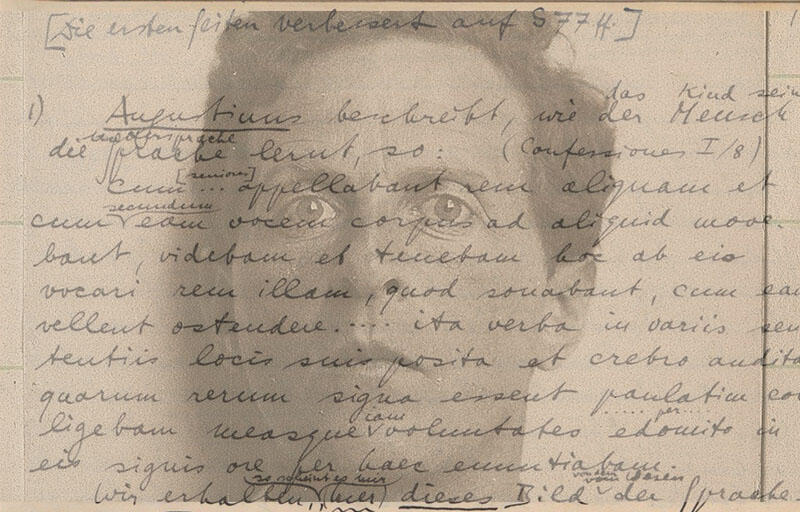 [Die ersten Seiten verbessert auf S 77 ff.]
das Kind sein
1) Augustinus beschreibt, wie der Mensch
die Sprache lernt, so: (Confessiones I/8)
[seniores]
cum ... appellabant rem aliquam et
secundum
cum eam vocem corpus ad aliquid move-
bant, videbam et tenebam hoc ab eis
vocari rem illam, quod sonabant, cum eam
vellent ostendere..... ita verba in variis sen
tentiis locis suis posita et crebro audita
quarum rerum signa essent paulatim col
iam ..... per....
ligebam measque voluntates edomito in
eis signis ore per haec enuntiabam.
so scheint es mir von dem Wesen
Wir erhalten, (hier) dieses Bild der Sprache